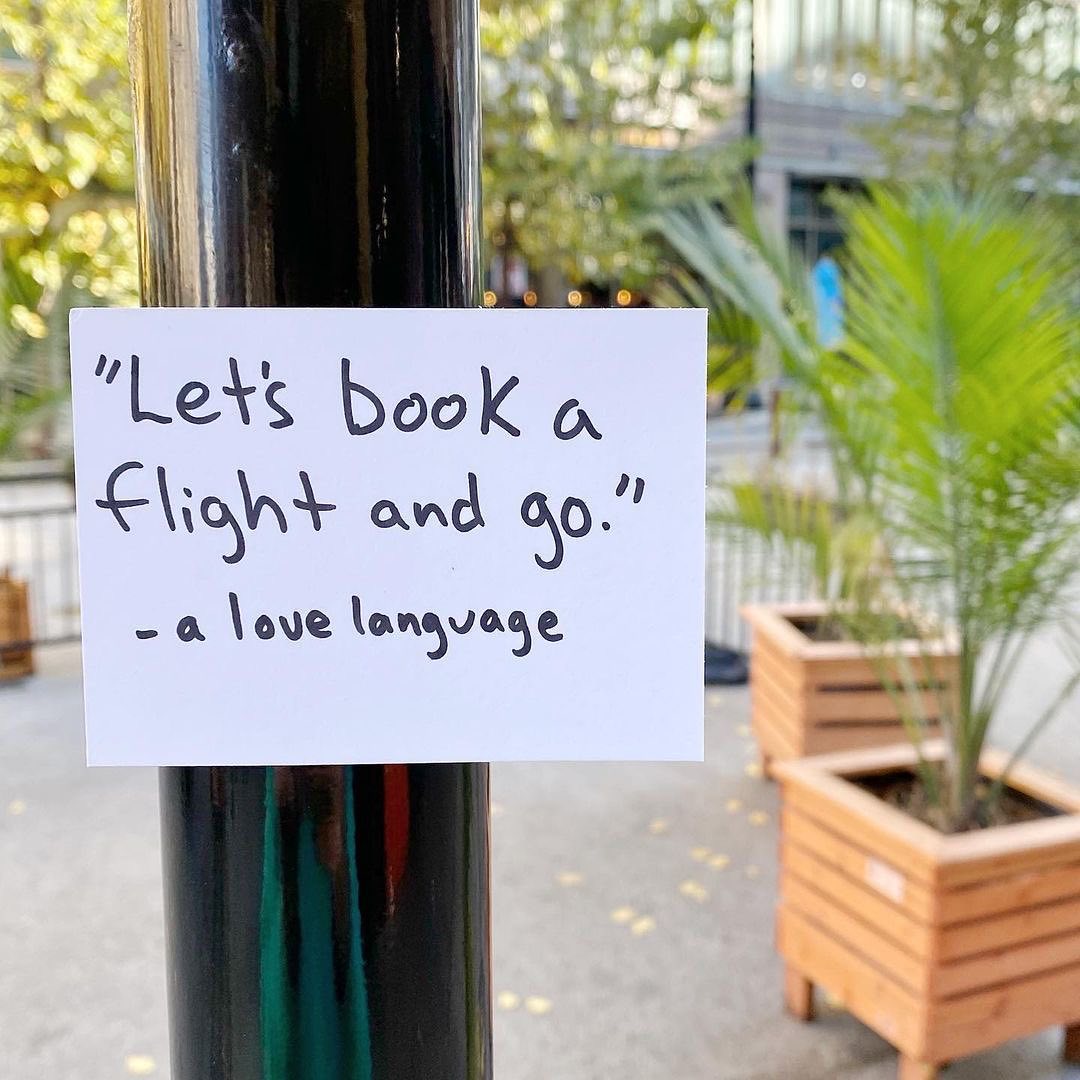 "Let's book a
flight and go."
- a love language